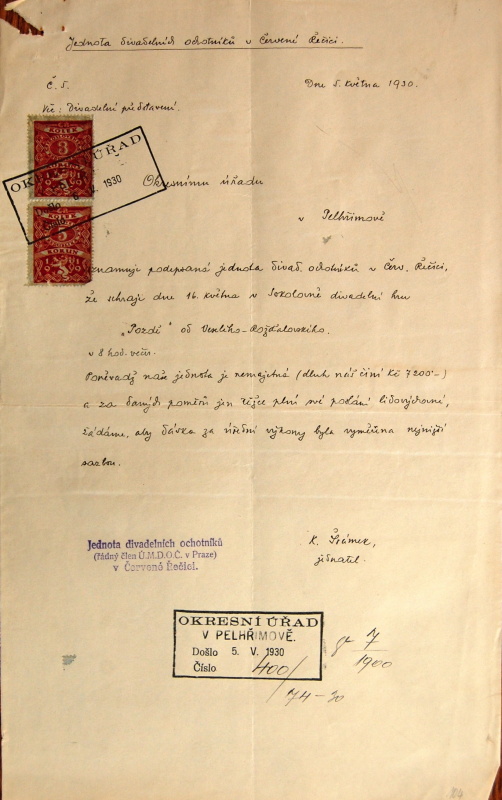 Jednota divadelních ochotníků v Červené Řečici.
Č. 5. Dne 5. května 1930.
Věc: Divadelní představení.
KOLEK
3
KOLEK
OKRESNÍ ÚŘAD
V. 1930
Okresnímu úřadu
v Pelhřimově
Oznamuje podepsaná jednota divad. ochotníků v Červ. Řečici,
že sehraje dne 16. května v Sokolovně divadelní hru
„Pozdě" od
v 8 hod. večer.
Poněvadž naše jednota je nemajetná (dluh náš činí Kč 7200·-)
a za daných poměrů jen těžce plní své poslání lidovýchovné,
žádáme, aby dávka za úřední výkony byla vyměřena nejnižší
sazbou.
Jednota divadelních ochotníků
(řádný člen Ú.M.D.O.Č. v Praze)
v Červené Řečici.
K. Šrámek,
jednatel.
OKRESNÍ ÚŘAD
V PELHŘIMOVĚ.
Došlo 5. V. 1930
Číslo 400/
7
1900
74-30